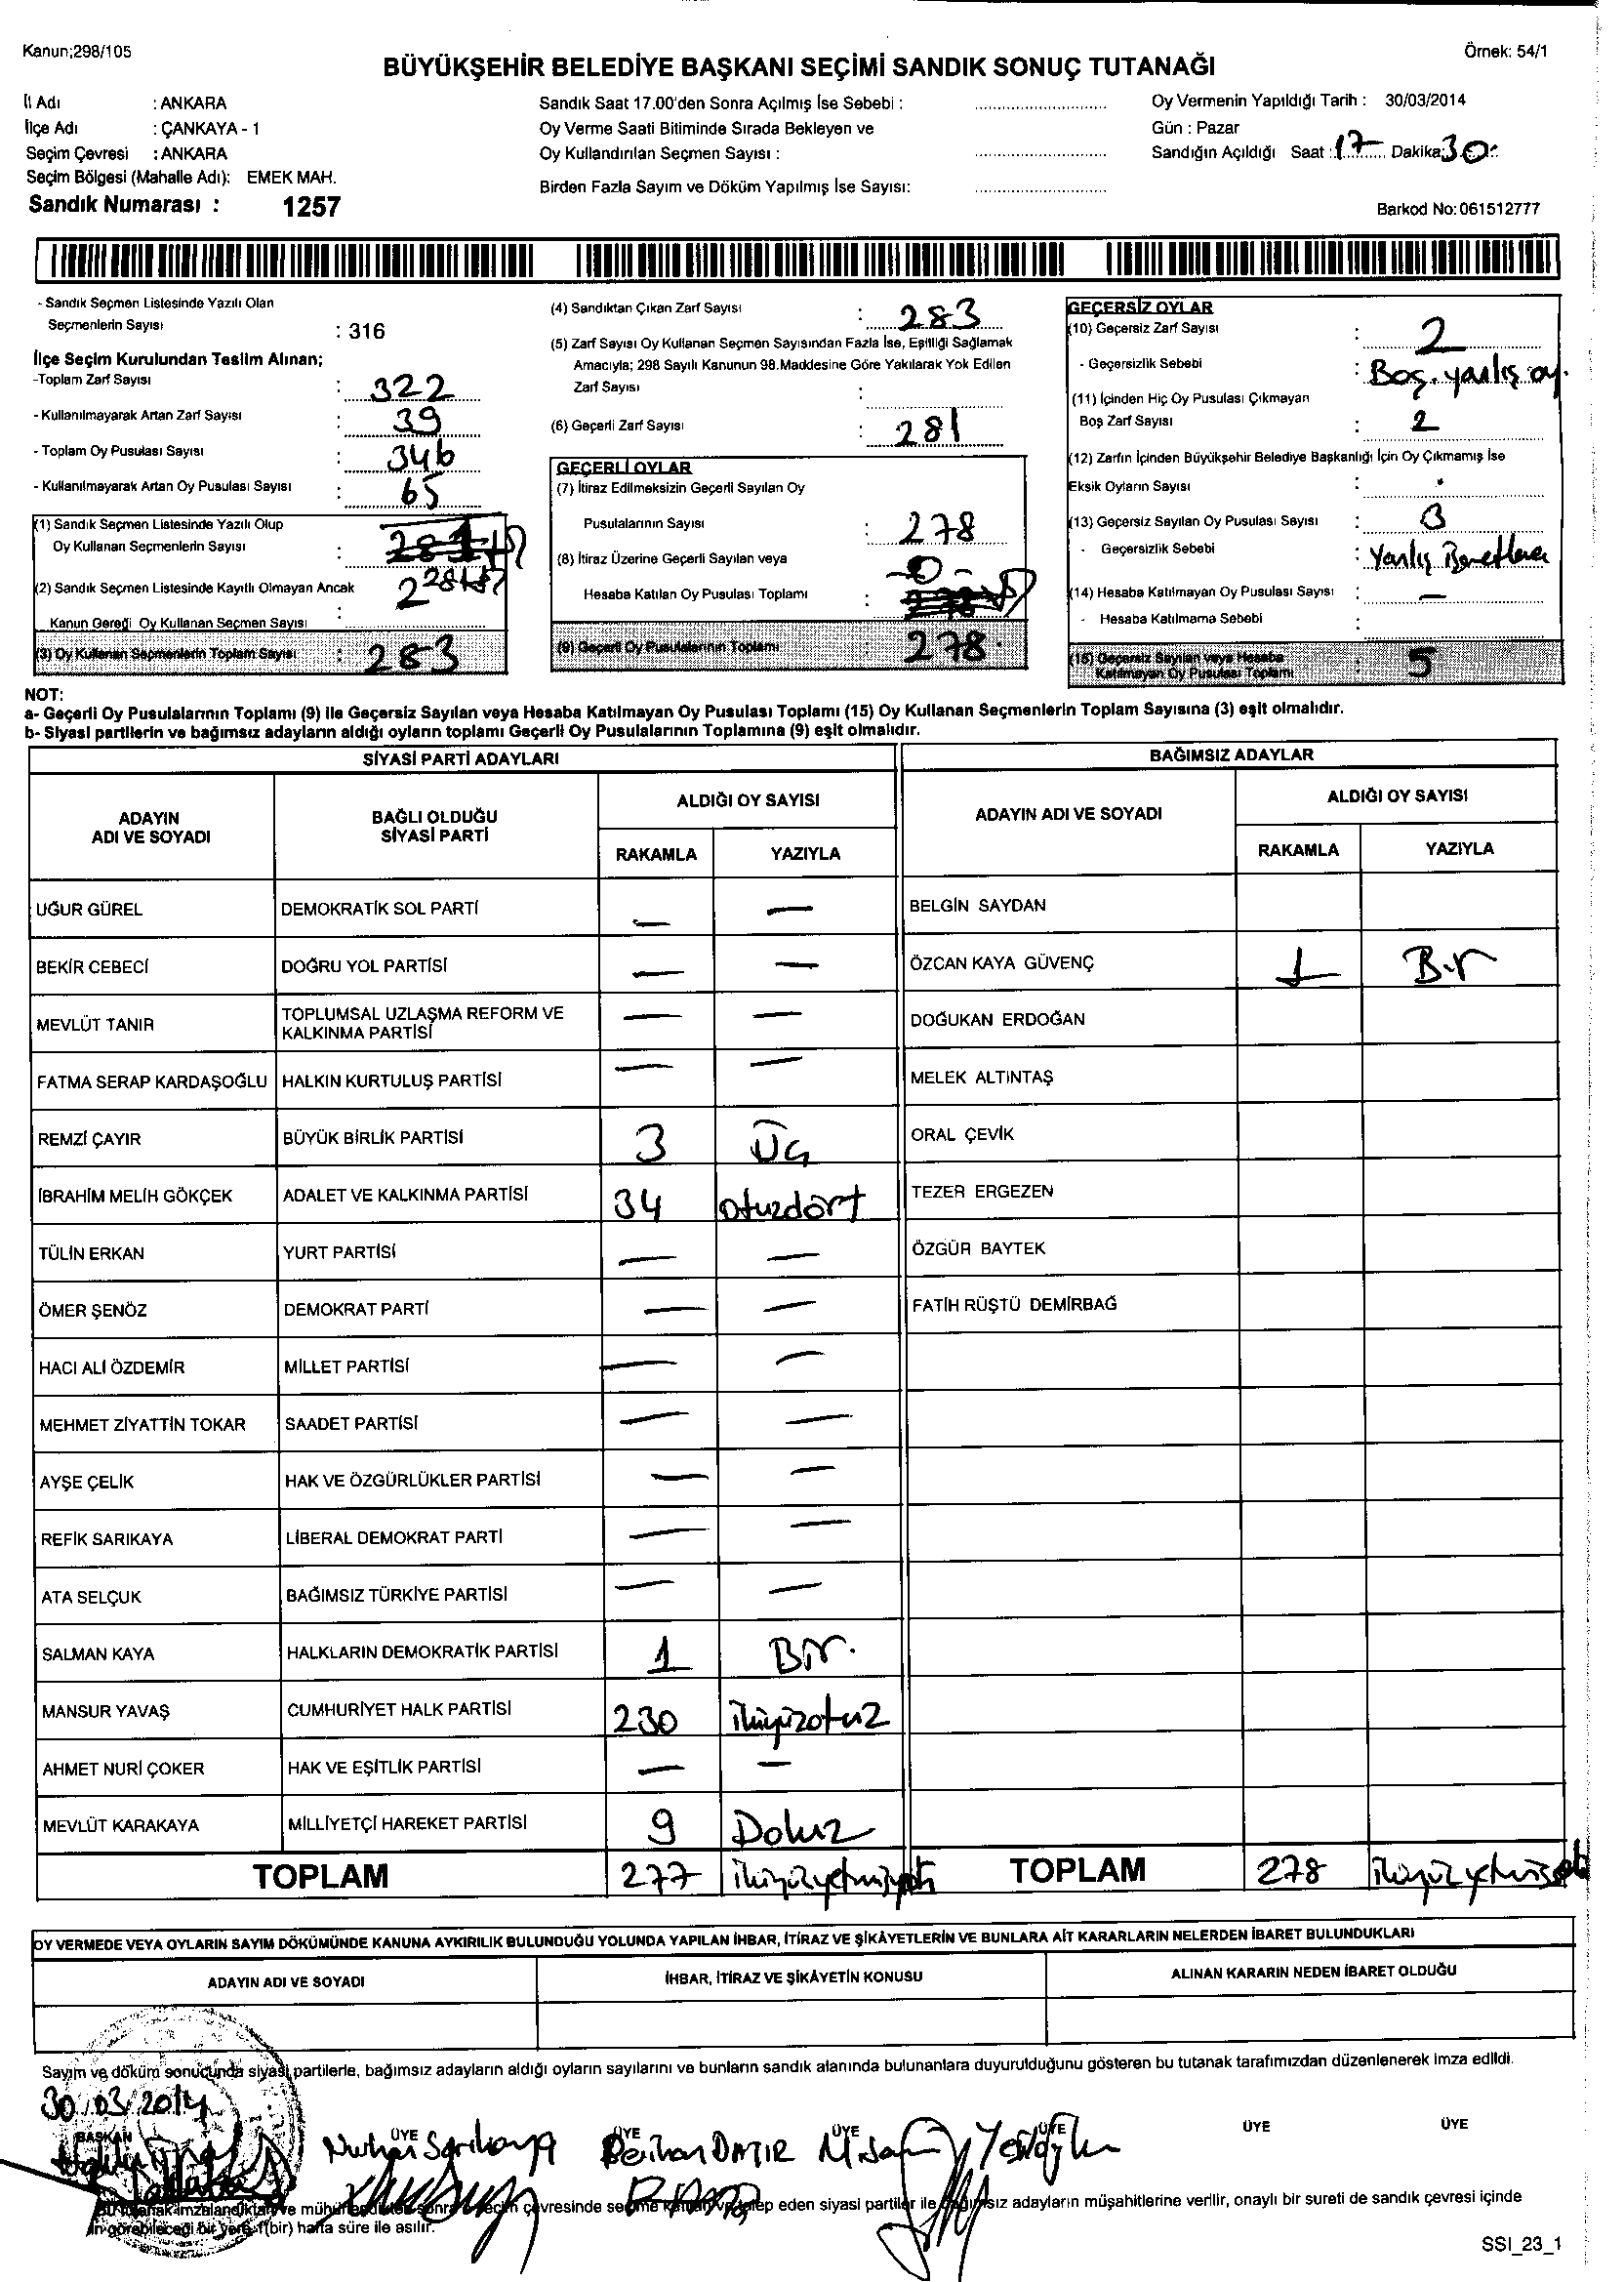 Kanun;298/105
Örnek: 54/1
BÜYÜKŞEHİR BELEDİYE BAŞKANI SEÇİMİ SANDIK SONUÇ TUTANAĞI
İl Adı : ANKARA
İlçe Adı : ÇANKAYA - 1
Seçim Çevresi : ANKARA
Seçim Bölgesi (Mahalle Adı): EMEK MAH.
Sandık Numarası : 1257
Sandık Saat 17.00'den Sonra Açılmış İse Sebebi :
Oy Verme Saati Bitiminde Sırada Bekleyen ve
Oy Kullandırılan Seçmen Sayısı :
Birden Fazla Sayım ve Döküm Yapılmış İse Sayısı:
Oy Vermenin Yapıldığı Tarih : 30/03/2014
Gün : Pazar
Sandığın Açıldığı Saat : 17 Dakika: 30
Barkod No: 061512777
- Sandık Seçmen Listesinde Yazılı Olan
Seçmenlerin Sayısı : 316
İlçe Seçim Kurulundan Teslim Alınan;
-Toplam Zarf Sayısı : 322
- Kullanılmayarak Artan Zarf Sayısı : 39
- Toplam Oy Pusulası Sayısı : 346
- Kullanılmayarak Artan Oy Pusulası Sayısı : 65
(1) Sandık Seçmen Listesinde Yazılı Olup
Oy Kullanan Seçmenlerin Sayısı :
(2) Sandık Seçmen Listesinde Kayıtlı Olmayan Ancak 2
Kanun Gereği Oy Kullanan Seçmen Sayısı :
(3) Oy Kullanan Seçmenlerin Toplam Sayısı : 283
(4) Sandıktan Çıkan Zarf Sayısı : 283
(5) Zarf Sayısı Oy Kullanan Seçmen Sayısından Fazla İse, Eşitliği Sağlamak
Amacıyla; 298 Sayılı Kanunun 98.Maddesine Göre Yakılarak Yok Edilen
Zarf Sayısı :
(6) Geçerli Zarf Sayısı : 281
GEÇERLİ OYLAR
(7) İtiraz Edilmeksizin Geçerli Sayılan Oy
Pusulalarının Sayısı : 278
(8) İtiraz Üzerine Geçerli Sayılan veya -0-
Hesaba Katılan Oy Pusulası Toplamı :
(9) Geçerli Oy Pusulalarının Toplamı 278
GEÇERSİZ OYLAR
(10) Geçersiz Zarf Sayısı : 2
- Geçersizlik Sebebi : Boş. yanlış oy.
(11) İçinden Hiç Oy Pusulası Çıkmayan
Boş Zarf Sayısı : 2
(12) Zarfın İçinden Büyükşehir Belediye Başkanlığı İçin Oy Çıkmamış İse
Eksik Oyların Sayısı :
(13) Geçersiz Sayılan Oy Pusulası Sayısı : 3
- Geçersizlik Sebebi : Yanlış
(14) Hesaba Katılmayan Oy Pusulası Sayısı : —
- Hesaba Katılmama Sebebi :
(15) Geçersiz Sayılan veya Hesaba
Katılmayan Oy Pusulası Toplamı : 5
NOT:
a- Geçerli Oy Pusulalarının Toplamı (9) ile Geçersiz Sayılan veya Hesaba Katılmayan Oy Pusulası Toplamı (15) Oy Kullanan Seçmenlerin Toplam Sayısına (3) eşit olmalıdır.
b- Siyasi partilerin ve bağımsız adayların aldığı oyların toplamı Geçerli Oy Pusulalarının Toplamına (9) eşit olmalıdır.
SİYASİ PARTİ ADAYLARI
BAĞIMSIZ ADAYLAR
ADAYIN
ADI VE SOYADI
BAĞLI OLDUĞU
SİYASİ PARTİ
ALDIĞI OY SAYISI
RAKAMLA YAZIYLA
ADAYIN ADI VE SOYADI
ALDIĞI OY SAYISI
RAKAMLA YAZIYLA
UĞUR GÜREL DEMOKRATİK SOL PARTİ — — BELGİN SAYDAN
BEKİR CEBECİ DOĞRU YOL PARTİSİ — — ÖZCAN KAYA GÜVENÇ 1 Bir
MEVLÜT TANIR TOPLUMSAL UZLAŞMA REFORM VE KALKINMA PARTİSİ — — DOĞUKAN ERDOĞAN
FATMA SERAP KARDAŞOĞLU HALKIN KURTULUŞ PARTİSİ — — MELEK ALTINTAŞ
REMZİ ÇAYIR BÜYÜK BİRLİK PARTİSİ 3 Üç ORAL ÇEVİK
İBRAHİM MELİH GÖKÇEK ADALET VE KALKINMA PARTİSİ 34 otuzdört TEZER ERGEZEN
TÜLİN ERKAN YURT PARTİSİ — — ÖZGÜR BAYTEK
ÖMER ŞENÖZ DEMOKRAT PARTİ — — FATİH RÜŞTÜ DEMİRBAĞ
HACI ALİ ÖZDEMİR MİLLET PARTİSİ — —
MEHMET ZİYATTİN TOKAR SAADET PARTİSİ — —
AYŞE ÇELİK HAK VE ÖZGÜRLÜKLER PARTİSİ — —
REFİK SARIKAYA LİBERAL DEMOKRAT PARTİ — —
ATA SELÇUK BAĞIMSIZ TÜRKİYE PARTİSİ — —
SALMAN KAYA HALKLARIN DEMOKRATİK PARTİSİ 1 Bir.
MANSUR YAVAŞ CUMHURİYET HALK PARTİSİ 230 ikiyüzotuz
AHMET NURİ ÇOKER HAK VE EŞİTLİK PARTİSİ — —
MEVLÜT KARAKAYA MİLLİYETÇİ HAREKET PARTİSİ 9 Dokuz
TOPLAM 277 ikiyüzyetmişyedi TOPLAM 278 ikiyüzyetmişsekiz
OY VERMEDE VEYA OYLARIN SAYIM DÖKÜMÜNDE KANUNA AYKIRILIK BULUNDUĞU YOLUNDA YAPILAN İHBAR, İTİRAZ VE ŞİKÂYETLERİN VE BUNLARA AİT KARARLARIN NELERDEN İBARET BULUNDUKLARI
ADAYIN ADI VE SOYADI İHBAR, İTİRAZ VE ŞİKÂYETİN KONUSU ALINAN KARARIN NEDEN İBARET OLDUĞU
Sayım ve döküm sonucunda siyasi partilerle, bağımsız adayların aldığı oyların sayılarını ve bunların sandık alanında bulunanlara duyurulduğunu gösteren bu tutanak tarafımızdan düzenlenerek imza edildi.
30/03/2014
BAŞKAN ÜYE ÜYE ÜYE ÜYE ÜYE ÜYE
Nurhan Sarıkaya
Bu tutanak imzalandıktan ve mühürlendikten sonra o seçim çevresinde seçime katılan ve talep eden siyasi partiler ile bağımsız adayların müşahitlerine verilir, onaylı bir sureti de sandık çevresi içinde
görebileceği bir yere 1(bir) hafta süre ile asılır.
SSI_23_1